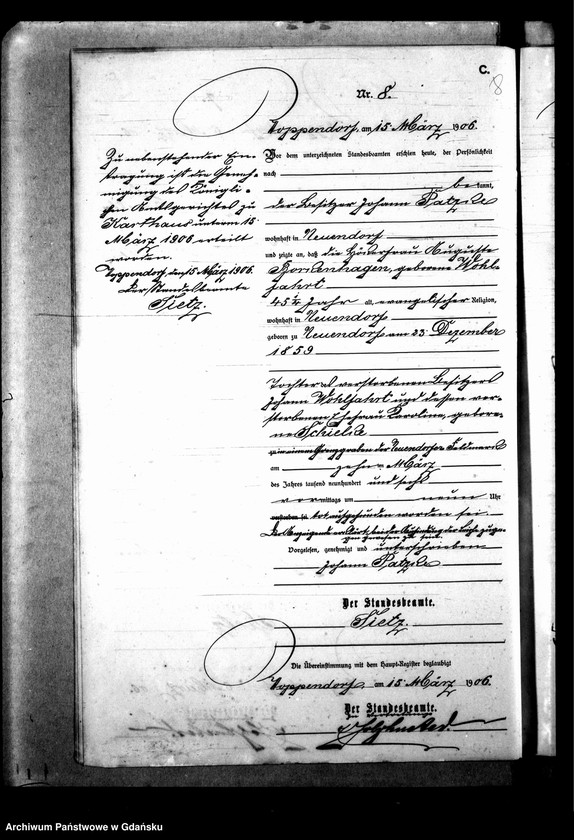 C.
8
Nr. 8.
Zoppendorf, am 15 März 1906.
Zu nebenstehender Ein-
tragung ist die Geneh-
migung des Königli-
chen Amtsgerichtes zu
Karthaus unterm 15
März 1906 erteilt
worden.
Zoppendorf, den 15 März 1906.
Der Standesbeamte
Tietz.
Vor dem unterzeichneten Standesbeamten erschien heute, der Persönlichkeit
nach
be kannt,
der Besitzer Johann Patzke
wohnhaft in Neuendorf
und zeigte an, daß die Hökerfrau Auguste
Borkenhagen, geborene Wohl-
fahrt
45 1/4 Jahr alt, evangelischer Religion,
wohnhaft in Neuendorf
geboren zu Neuendorf am 23 Dezember
1859
Tochter des verstorbenen Besitzers
Johann Wohlfahrt und dessen ver-
storbenen Ehefrau Karoline, gebore-
ne Schielke
in einem Grenzgraben der Neuendorfer Feldmark
am zehn März
des Jahres tausend neunhundert und sechs
vor mittags um neun Uhr
verstorben sei tot aufgefunden worden sei.
Der Anzeigende erklärt, bei der Auffindung der Leiche zuge-
gen gewesen zu sein.
Vorgelesen, genehmigt und unterschrieben
Johann Patzke
Der Standesbeamte.
Tietz.
Die Übereinstimmung mit dem Haupt-Register beglaubigt
Zoppendorf, am 15 März 1906.
Der Standesbeamte.
Archiwum Państwowe w Gdańsku